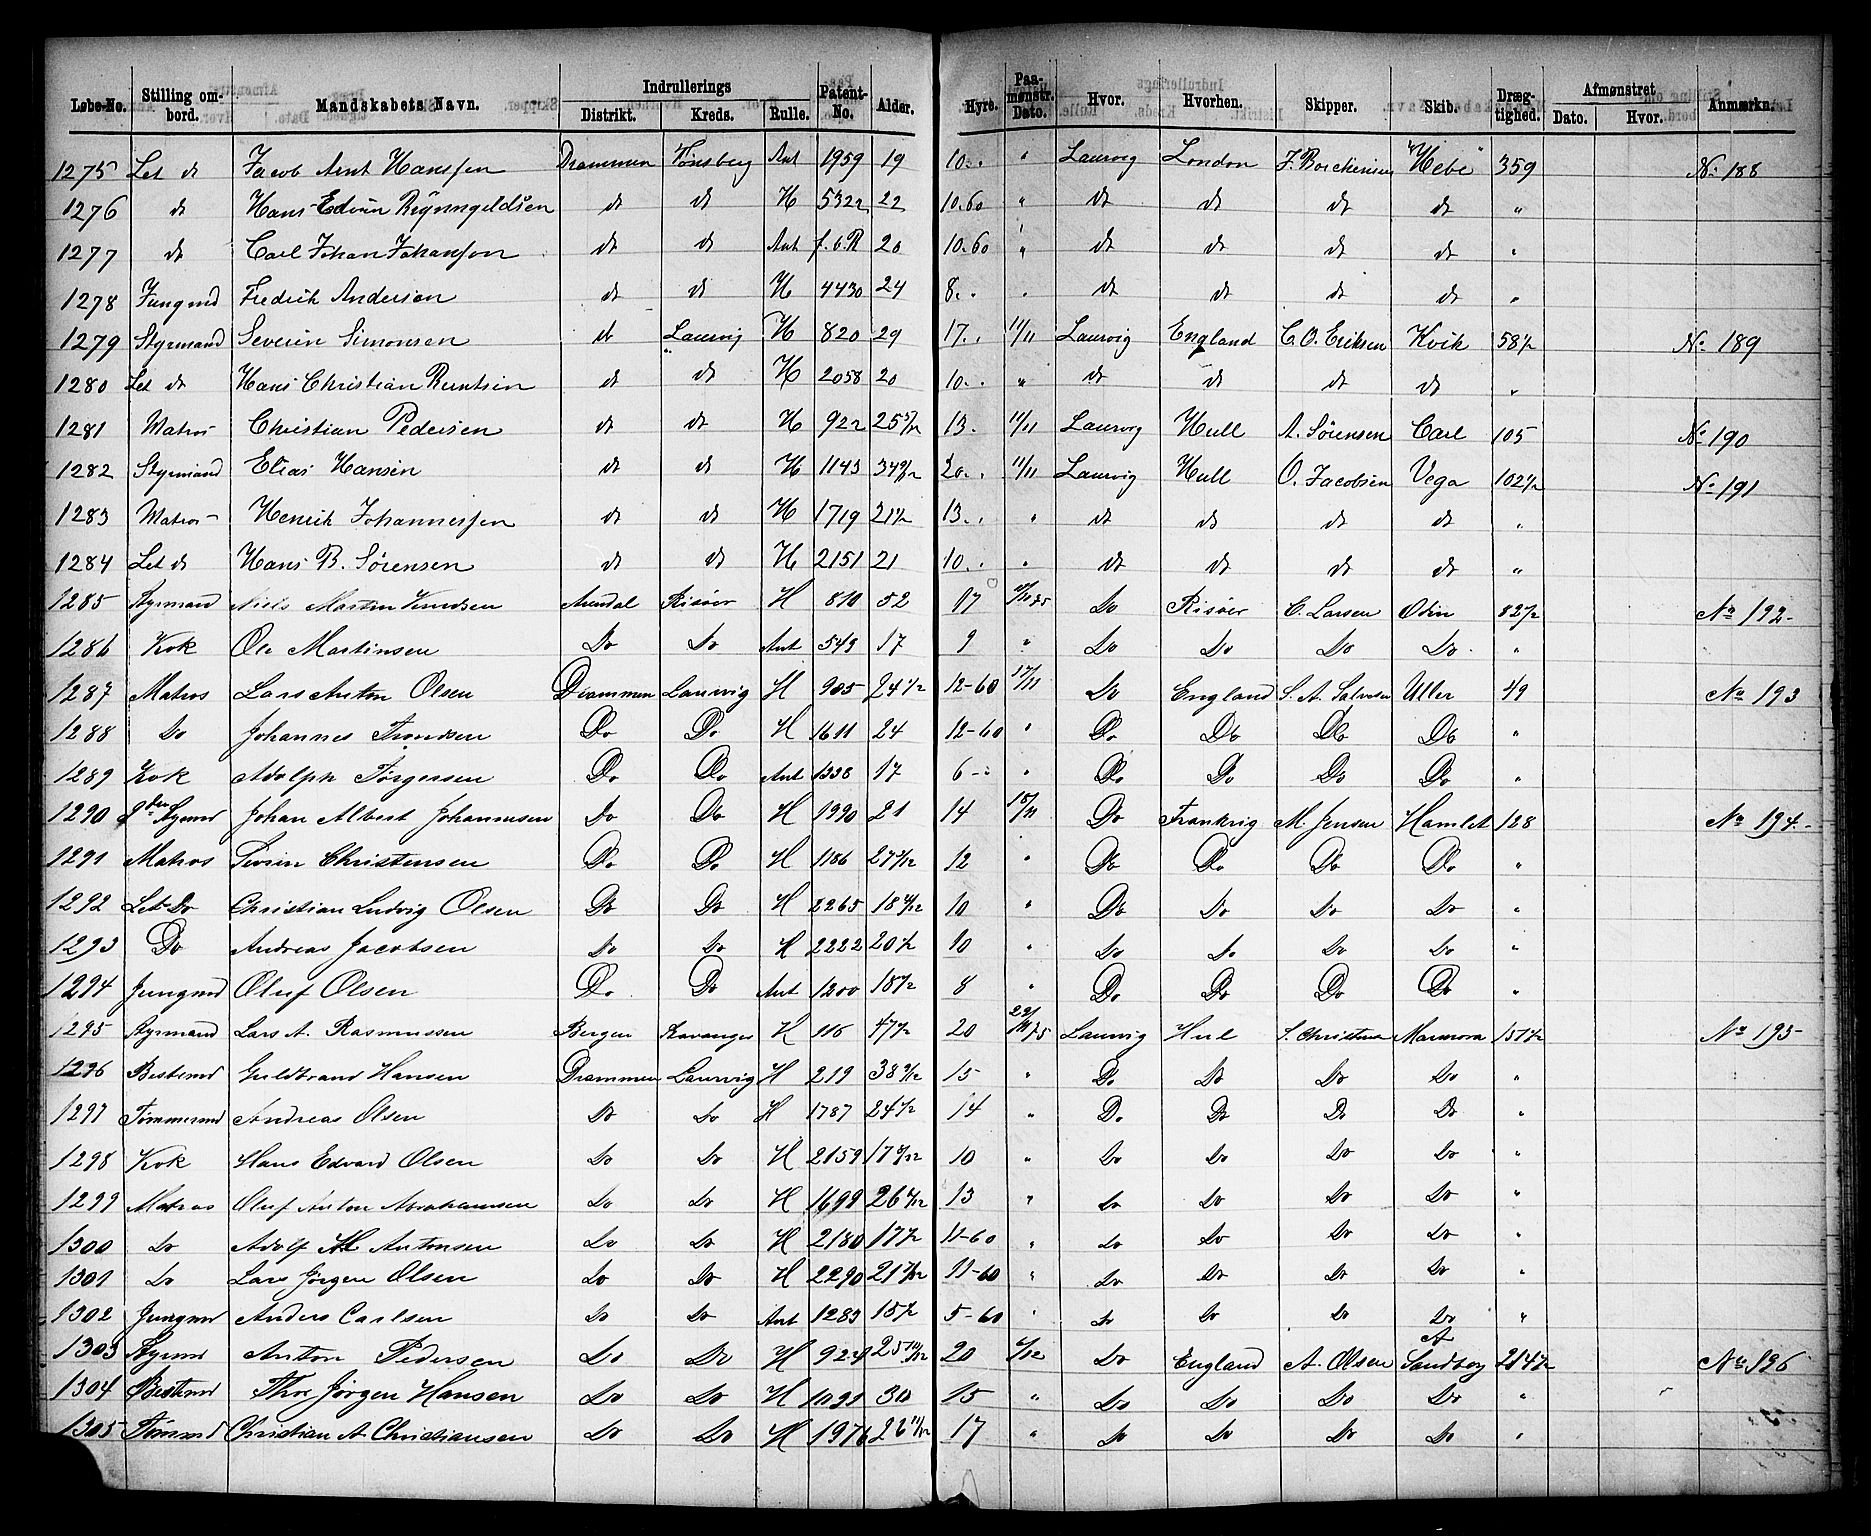 Løbe-No. | Stilling ombord. | Mandskabets Navn. | Indrullerings Distrikt. | Kreds. | Rulle. | Patent-No. | Alder. | Hyre. | Paamønstr. Dato. | Hvor. | Hvorhen. | Skipper. | Skib. | Drægtighed. | Afmønstret Dato. | Hvor. | Anmærkn.
1275 | Let do | Jacob Arnt Hanssen | Drammen | Tønsberg | Ant | 1959 | 19 | 10.. | " | Laurvig | London | "Hebe" | 359 | No 188
1276 | do | Hans Edvin | do | do | H | 5322 | 22 | 10.60 | " | do | do | do | do | "
1277 | do | Carl Johan Johansson | do | do | Ant | f.o.R | 20 | 10.60 | " | do | do | do | do | "
1278 | Jungmd | Fredrik Andersen | do | do | H | 4430 | 24 | 8.. | " | do | do | do | do | "
1279 | Styrmand | Severin Simonsen | do | Laurvig | H | 820 | 29 | 17.. | 11/11 | Laurvig | England | C. O. Eriksen | Kvik | 58 1/2 | No 189
1280 | Let do | Hans Christian Berntsen | do | do | H | 2058 | 20 | 10.. | " | do | do | do | do | "
1281 | Matros | Christian Pedersen | do | do | H | 922 | 25 5/12 | 13. | 11/11 | Laurvig | Hull | A. Sörensen | Carl | 105 | No 190
1282 | Styrmand | Elias Hansen | do | do | H | 1143 | 34 | 20.. | 11/11 | Laurvig | Hull | O. Jacobsen | Vega | 102 1/2 | No 191
1283 | Matros | Henrik Johannessen | do | do | H | 1719 | 21 1/2 | 13.. | " | do | do | do | do | "
1284 | Let do | Hans B. Sörensen | do | do | H | 2151 | 21 | 10.. | " | do | do | do | do | "
1285 | Styrmand | Niels Martin Knudsen | Arendal | Risöer | H | 810 | 52 | 17 | Do | Risöer | C. Larsen | Odin | 82 1/2 | No 192
1286 | Kok | Ole Martinsen | Do | Do | Ant | 543 | 17 | 9 | " | Do | Do | Do | Do | "
1287 | Matros | Lars Anton Olsen | Drammen | Laurvig | H | 905 | 24 1/2 | 12-60 | 17/11 | Do | England | S. A. Salvesen | Uller | 49 | No 193
1288 | Do | Johannes Trondsen | Do | Do | H | 1611 | 24 | 12-60 | " | Do | Do | Do | Do | "
1289 | Kok | Adolph Törgersen | Do | Do | Ant | 1338 | 17 | 6-" | " | Do | Do | Do | Do | "
1290 | 2den Styrmd | Johan Albert Johannesen | Do | Do | H | 1990 | 21 | 14 | 15/11 | Do | Frankrig | M. Jensen | Hamlet | 128 | No 194
1291 | Matros | Sören Christensen | Do | Do | H | 1186 | 27 | 12 | " | Do | Do | Do | Do | "
1292 | Let Do | Christian Ludvig Olsen | Do | Do | H | 2265 | 18 | 10 | " | Do | Do | Do | Do | "
1293 | Do | Andreas Jacobsen | Do | Do | H | 2222 | 20 1/2 | 10 | " | Do | Do | Do | Do | "
1294 | Jungmd | Oluf Olsen | Do | Do | Ant | 1200 | 18 1/2 | 8 | " | Do | Do | Do | Do | "
1295 | Styrmand | Lars A. Rasmussen | Bergen | Stavanger | H | 116 | 47 1/2 | 20 | 22/11 75 | Laurvig | Hul | S. Christensen | Marmora | 157 1/2 | No 195
1296 | Bestmd | Guldbrand Hansen | Drammen | Laurvig | H | 219 | 38 | 15 | " | Do | Do | Do | Do | "
1297 | Tömmermd | Andreas Olsen | Do | Do | H | 1787 | 24 1/2 | 14 | " | Do | Do | Do | Do | "
1298 | Kok | Hans Edvard Olsen | Do | Do | H | 2159 | 17 | 10 | " | Do | Do | Do | Do | "
1299 | Matros | Oluf Anton Abrahamsen | Do | Do | H | 1699 | 26 | 13 | " | Do | Do | Do | Do | "
1300 | Do | Adolf M Antonsen | Do | Do | H | 2180 | 17 1/2 | 11-60 | " | Do | Do | Do | Do | "
1301 | Do | Lars Jörgen Olsen | Do | Do | H | 2290 | 21 | 11-60 | " | Do | Do | Do | Do | "
1302 | Jungmd | Anders Carlsen | Do | Do | Ant | 1283 | 15 1/2 | 5-60 | " | Do | Do | Do | Do | "
1303 | Styrmd | Anton Pedersen | Do | Do | H | 924 | 25 | 20 | Do | England | A. Olsen | A Sandberg | 214 1/2 | No 196
1304 | Bestmd | Thor Jörgen Hansen | Do | Do | H | 1091 | 30 | 15 | " | Do | Do | Do | Do | "
1305 | Tömmd | Christian A Christiansen | Do | Do | H | 1976 | 26 11/12 | 17 | " | Do | Do | Do | Do | "